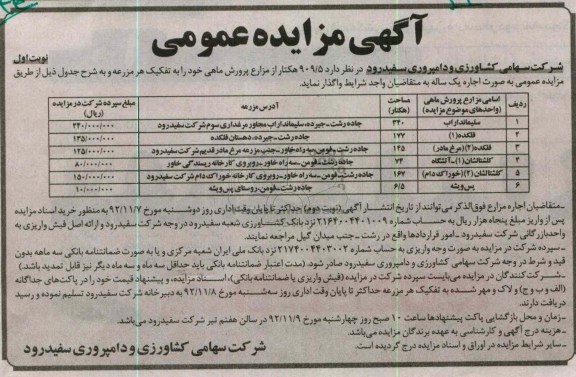 آگهی مزایده عمومی
نوبت اول
شرکت سهامی کشاورزی و دامپروری سفیدرود در نظر دارد ۹۰۹/۵ هکتار از مزارع پرورش ماهی خود را به تفکیک هر مزرعه و به شرح جدول ذیل از طریق
مزایده عمومی به صورت اجاره یک ساله به متقاضیان واجد شرایط واگذار نماید.
ردیف اسامی مزارع پرورش ماهی (واحدهای موضوع مزایده) مساحت (هکتار) آدرس مزرعه مبلغ سپرده شرکت در مزایده (ریال)
۱ سلیمانداراب ۳۴۰ جاده رشت - جیرده، سلیمانداراب مجاور مرغداری سوم شرکت سفیدرود ۲۴۰/۰۰۰/۰۰۰
۲ فلکده(۱) ۱۷۷ جاده رشت - جیرده، دهستان فلکده ۱۳۵/۰۰۰/۰۰۰
۳ فلکده(۲)(مرغ مادر) ۱۴۵ جاده رشت - فومن، سه راه خاور - جنب مزرعه مرغ مادر قدیم شرکت سفیدرود ۱۲۵/۰۰۰/۰۰۰
۴ گلشتالشان(۱) - آتشگاه ۷۴ جاده رشت - فومن - سه راه خاور - روبروی کارخانه ریسندگی خاور ۸۰/۰۰۰/۰۰۰
۵ گلشتالشان(۲)(خوراک دام) ۱۶۷ جاده رشت - فومن، سه راه خاور - روبروی کارخانه خوراک دام شرکت سفیدرود ۱۵۰/۰۰۰/۰۰۰
۶ پس ویشه ۶/۵ جاده رشت - فومن، روستای پس ویشه ۱۰/۰۰۰/۰۰۰
-متقاضیان اجاره مزارع فوق الذکر می توانند از تاریخ انتشار آگهی (نوبت دوم) حداکثر تا پایان وقت اداری روز دوشنبه مورخ ۹۲/۱۱/۷ به منظور خرید اسناد مزایده
پس از واریز مبلغ پنجاه هزار ریال به حساب شماره ۲۱۶۴۰۰۴۴۰۱۰۰۹ نزد بانک کشاورزی شعبه سفیدرود در وجه شرکت سفیدرود و ارائه اصل فیش واریزی به
واحد بازرگانی شرکت سفیدرود - امور قراردادها واقع در رشت - جنب میدان گیل مراجعه نمایند.
-سپرده شرکت در مزایده به صورت وجه واریزی به حساب شماره ۲۱۷۴۰۰۴۴۰۳۰۰۲ نزد بانک ملی ایران شعبه مرکزی و یا به صورت ضمانتنامه بانکی سه ماهه بدون
قید و شرط در وجه شرکت سهامی کشاورزی و دامپروری سفیدرود صادر شود. (مدت اعتبار ضمانتنامه بانکی باید حداقل سه ماه و سه ماه دیگر نیز قابل تمدید باشد.)
-شرکت کنندگان در مزایده می بایست سپرده شرکت در مزایده (فیش واریزی یا ضمانتنامه بانکی)، اسناد مزایده و پیشنهاد قیمت خود را در پاکت های جداگانه
(الف و ب و ج) و لاک و مهر شده به تفکیک هر مزرعه حداکثر تا پایان وقت اداری روز سه شنبه مورخ ۹۲/۱۱/۸ به دبیرخانه شرکت سفیدرود تسلیم نموده و رسید
دریافت دارند.
-زمان و محل بازگشایی پاکت پیشنهادها ساعت ۱۰ صبح روز چهارشنبه مورخ ۹۲/۱۱/۹ در سالن هفتم تیر شرکت سفیدرود می باشد.
-هزینه درج آگهی و کارشناسی به عهده برندگان مزایده می باشد.
-سایر شرایط مزایده در اوراق و اسناد مزایده درج گردیده است.
شرکت سهامی کشاورزی و دامپروری سفیدرود